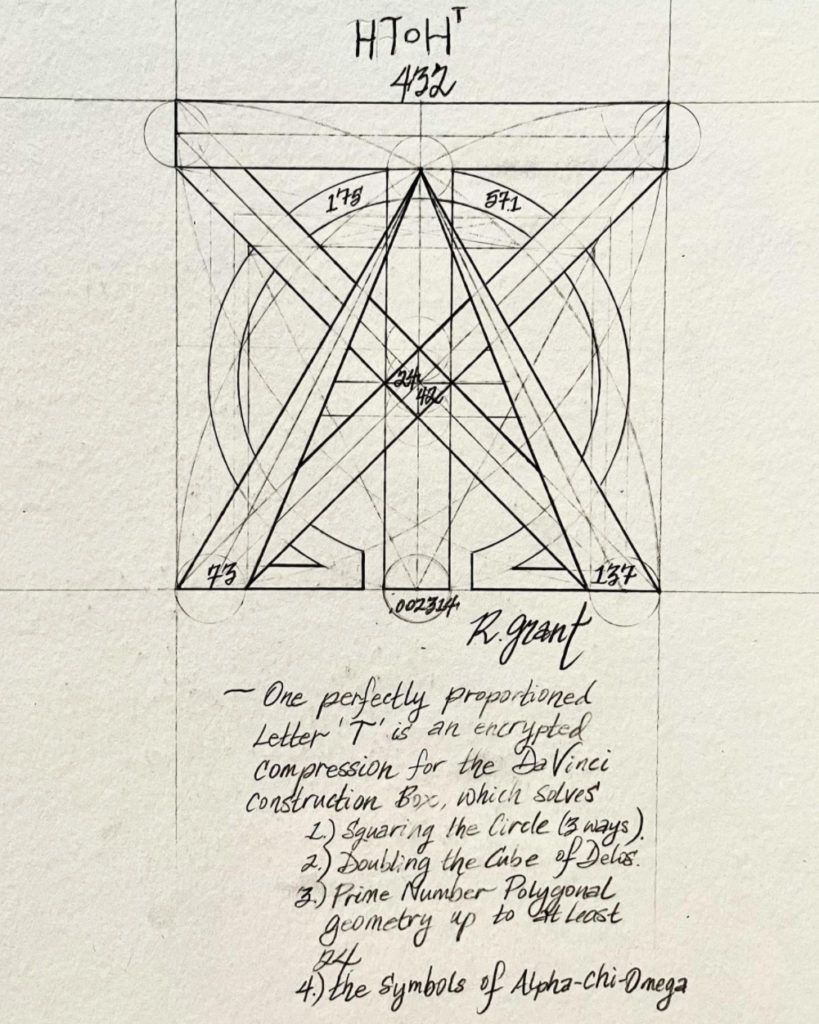 HTOH^T
432
175
571
24
42
73
137
.002314
R. Grant
— One perfectly proportioned
Letter 'T' is an encrypted
compression for the DaVinci
construction Box, which solves
1.) Squaring the Circle (3 ways).
2.) Doubling the Cube of Delos.
3.) Prime Number Polygonal
geometry up to at least
24
4.) the Symbols of Alpha-Chi-Omega